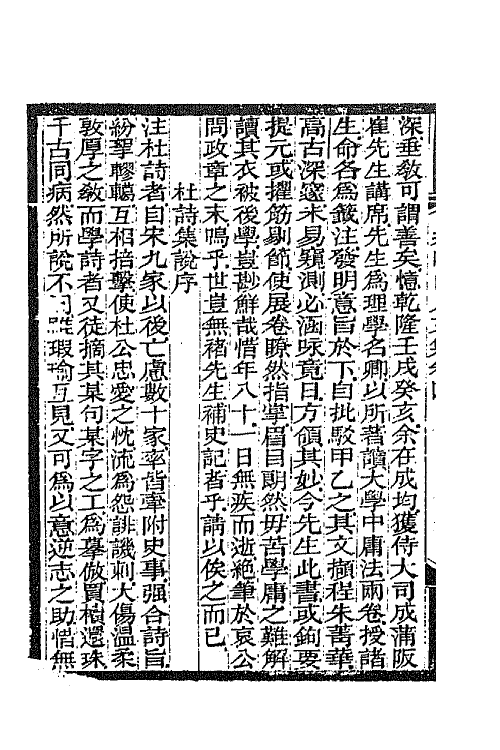 深垂敎可謂善矣憶乾隆壬戌癸亥余在成均獲侍大司成蒲阪
崔先生講席先生爲理學名卿以所著讀大學中庸法兩卷授諸
生命各爲籤注發明意旨於下自批駁甲乙之其文擷程朱菁華
高古深邃未易窺測必涵咏竟日方領其妙今先生此書或鉤要
提元或擢筋剔節使展卷瞭然指掌眉目朗然毋苦學庸之難解
讀其衣被後學豈尠鮮哉惜年八十一日無疾而逝絶筆於哀公
問政章之末嗚乎世豈無褚先生補史記者乎請以俟之而已
杜詩集說序
注杜詩者自宋九家以後亡慮數十家率皆牽附史事强合詩旨
紛挐轇轕互相掊擊使杜公忠愛之忱流爲怨誹譏刺大傷溫柔
敦厚之敎而學詩者又徒摘其某句某字之工爲摹倣買櫝還珠
千古同病然所說不同雖瑕瑜互見又可爲以意逆志之助惜無